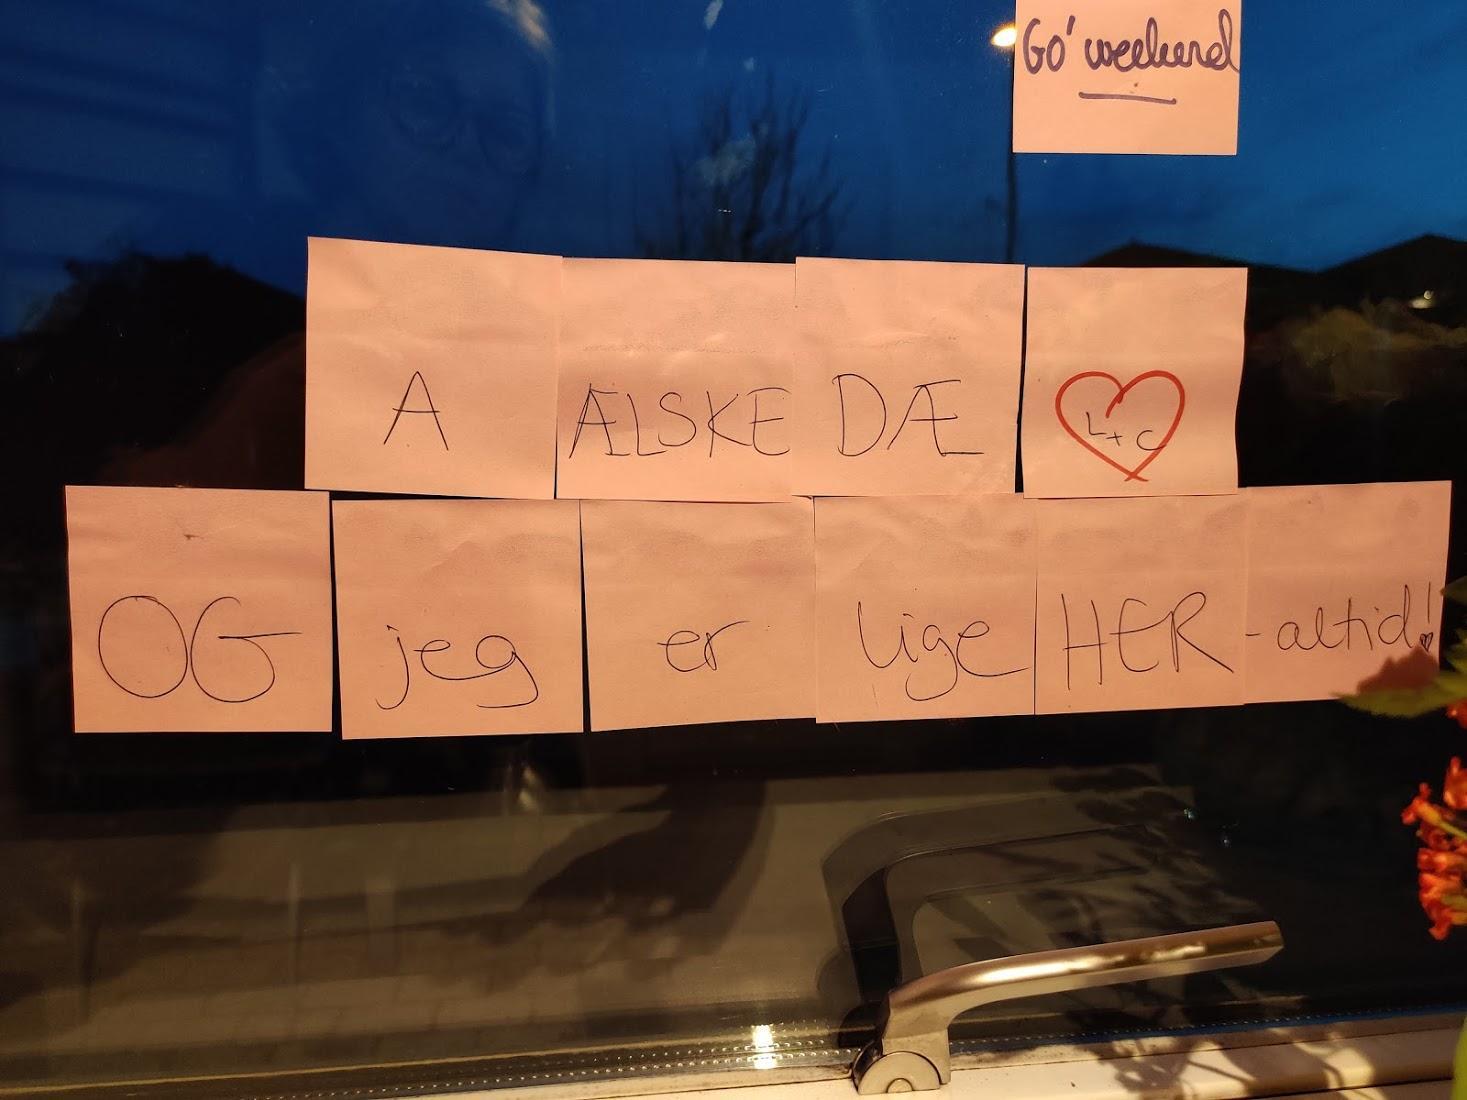 Go' weekend
A ÆLSKE DÆ L+C
OG jeg er lige HER - altid!